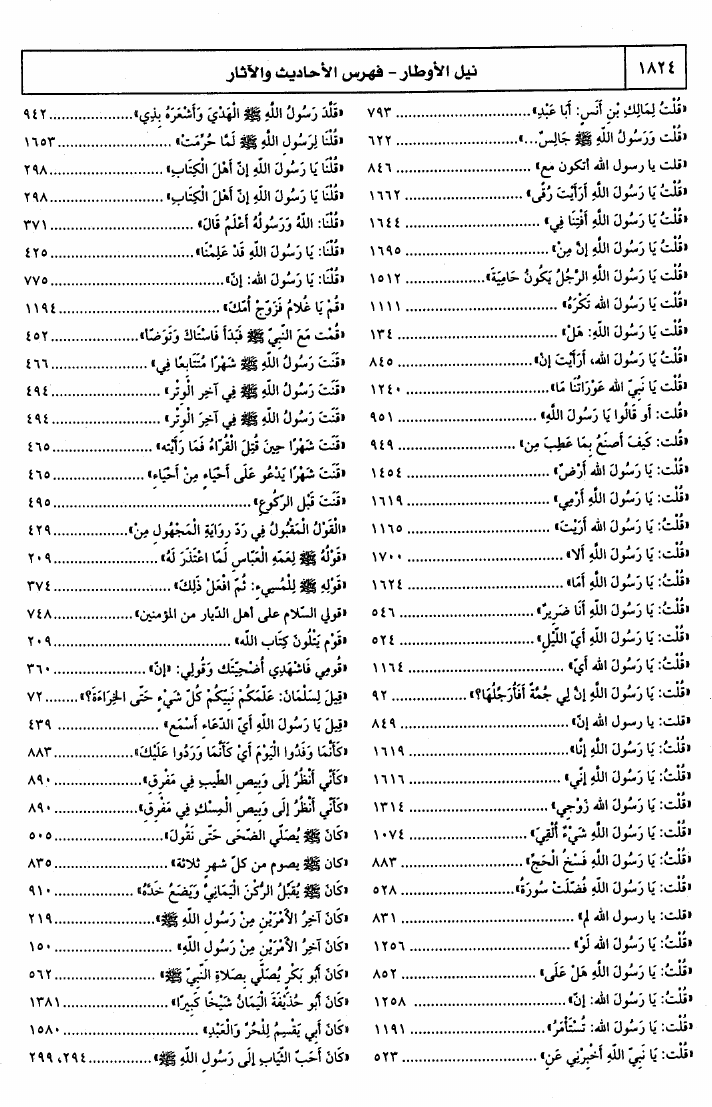 ١٨٢٤
نيل الأوطار - فهرس الأحاديث والآثار
«قُلْتُ لِمَالِكِ بْنِ أَنَسٍ: أَبَا عَبْدِ» ................ ٧٩٣
«قُلْت وَرَسُولُ اللَّهِ ﷺ جَالِسٌ...» ................ ٦٢٢
«قلت يا رسول الله أتكون مع» ................ ٨٤٦
«قُلْت يَا رَسُولَ اللَّهِ أَرَأَيْت رُقًى» ................ ١٦٦٢
«قُلْت يَا رَسُولَ اللَّهِ أَفْتِنَا فِي» ................ ١٦٤٤
«قُلْت يَا رَسُولَ اللَّهِ إنَّ مِنْ» ................ ١٦٩٥
«قُلْت يَا رَسُولَ اللَّهِ الرَّجُلُ يَكُونُ حَامِيَةَ» ................ ١٥١٢
«قُلْت يَا رَسُولَ الله تَكْرَهُ» ................ ١١١١
«قُلْت يَا رَسُولَ اللَّهِ: هَلْ» ................ ١٣٤
«قُلْت يَا رَسُولَ الله، أَرَأَيْت إنْ» ................ ٨٤٥
«قُلْت يَا نَبِيَّ اللَّهِ عَوْرَاتُنَا مَا» ................ ١٢٤٠
«قلت: أو قَالُوا يَا رَسُولَ اللَّهِ» ................ ٩٥١
«قُلْت: كَيْفَ أَصْنَعُ بِمَا عَطِبَ مِن» ................ ٩٤٩
«قُلْت: يَا رَسُولَ الله أَرْضٌ» ................ ١٤٥٤
«قُلْت: يَا رَسُولَ اللَّهِ أَرْمِي» ................ ١٦١٩
«قُلْتُ: يَا رَسُولَ الله أَرَيْت» ................ ١١٦٥
«قُلْت: يَا رَسُولَ اللَّهِ أَلا» ................ ١٧٠٠
«قُلْتُ: يَا رَسُولَ اللَّهِ أَمَا» ................ ١٦٢٤
«قُلْتُ: يَا رَسُولَ اللَّهِ أَنَا ضَرِيرٌ» ................ ٥٤٦
«قُلْت: يَا رَسُولَ اللَّهِ أَيُّ اللَّيْلِ» ................ ٥٢٤
«قُلْت: يَا رَسُولَ الله أَيُّ» ................ ١١٦٤
«قُلْت: يَا رَسُولَ اللَّهِ إنَّ لِي جُمَّةً أَفَأُرَجِّلُهَا؟» ................ ٩٢
«قلت: يا رسول الله إنّ» ................ ٨٤٩
«قُلْت: يَا رَسُولَ اللَّهِ إنَّا» ................ ١٦١٩
«قُلْت: يَا رَسُولَ اللَّهِ إنِّي» ................ ١٦١٦
«قُلْت: يَا رَسُولَ الله زَوْجِي» ................ ١٣١٤
«قُلْت: يَا رَسُولَ اللَّهِ شَيْءٌ أُلْقِيَ» ................ ١٠٧٤
«قُلْت: يَا رَسُولَ اللَّهِ فَسْخُ الْحَجِّ» ................ ٨٨٣
«قُلْت: يَا رَسُولَ اللَّهِ فُضِّلَتْ سُورَةُ» ................ ٥٢٨
«قلت: يا رسول الله لم» ................ ٨٣١
«قُلْتُ: يَا رَسُولَ الله لَوْ» ................ ١٢٥٦
«قُلْت: يَا رَسُولَ اللَّهِ هَلْ عَلَى» ................ ٨٥٢
«قُلْتُ: يَا رَسُولَ الله: إنّ» ................ ١٢٥٨
«قُلْت: يَا رَسُولَ الله: تُسْتَأْمَرُ» ................ ١١٩١
«قُلْت: يَا نَبِيَّ اللَّهِ أَخْبِرْنِي عَنِ» ................ ٥٢٣
«قَلَّدَ رَسُولُ اللَّهِ ﷺ الْهَدْيَ وَأَشْعَرَهُ بِذِي» ................ ٩٤٢
«قُلْنَا لِرَسُولِ اللهِ ﷺ لَمَّا حُرِّمَتْ» ................ ١٦٥٣
«قُلْنَا يَا رَسُولَ اللَّهِ إنَّ أَهْلَ الْكِتَابِ» ................ ٢٩٨
«قُلْنَا يَا رَسُولَ اللَّهِ إنَّ أَهْلَ الْكِتَابِ» ................ ٢٩٨
«قُلْنَا: اللَّهُ وَرَسُولُهُ أَعْلَمُ قَالَ» ................ ٣٧١
«قُلْنَا: يَا رَسُولَ اللَّهِ قَدْ عَلِمْنَا» ................ ٤٢٥
«قُلْنَا: يَا رَسُولَ الله: إنّ» ................ ٧٧٥
«قُمْ يَا غُلامُ فَزَوِّجْ أُمَّكَ» ................ ١١٩٤
«قُمْت مَعَ النَّبِيِّ ﷺ فَبَدَأَ فَاسْتَاكَ وَتَوَضَّأَ» ................ ٤٥٢
«قَنَتَ رَسُولُ اللَّهِ ﷺ شَهْرًا مُتَتَابِعًا فِي» ................ ٤٦٦
«قَنَتَ رَسُولُ اللَّهِ ﷺ فِي آخِرِ الْوِتْرِ» ................ ٤٩٤
«قَنَتَ رَسُولُ اللَّهِ ﷺ فِي آخِرَ الْوِتْرِ» ................ ٤٩٤
«قَنَتَ شَهْرًا حِينَ قُتِلَ الْقُرَّاءُ فَمَا رَأَيْته» ................ ٤٦٥
«قَنَتَ شَهْرًا يَدْعُو عَلَى أَحْيَاءٍ مِنْ أَحْيَاءِ» ................ ٤٦٥
«قَنَتَ قَبْلَ الرُّكُوعِ» ................ ٤٩٥
«الْقَوْلُ الْمَقْبُولُ فِي رَدِّ رِوَايَةِ الْمَجْهُولِ مِنْ» ................ ٤٢٩
«قَوْلُهُ ﷺ لِعَمِّهِ الْعَبَّاسِ لَمَّا اعْتَذَرَ لَهُ» ................ ٢٠٩
«قَوْلِهِ ﷺ لِلْمُسِيءِ: ثُمَّ افْعَلْ ذَلِكَ» ................ ٣٧٤
«قولي السّلام على أهل الدّيار من المؤمنين» ................ ٧٤٨
«قَوْم يَتْلُونَ كِتَابَ الله» ................ ٢٠٩
«قُومِي فَاشْهَدِي أُضْحِيَّتَك وَقُولِي: «إنّ» ................ ٣٦٠
«قِيلَ لِسَلْمَانَ: عَلَّمَكُمْ نَبِيُّكُمْ كُلَّ شَيْءٍ حَتَّى الْخِرَاءَةَ؟» ........ ٧٢
«قِيلَ يَا رَسُولَ اللَّهِ أَيُّ الدُّعَاءِ أَسْمَع» ................ ٤٣٩
«كَأَنَّمَا وَفَدُوا الْيَوْمَ أَيْ كَأَنَّمَا وَرَدُوا عَلَيْكَ» ................ ٨٨٣
«كَأَنِّي أَنْظُرُ إلَى وَبِيصِ الطِّيبِ فِي مَفْرِقِ» ................ ٨٩٠
«كَأَنِّي أَنْظُرُ إلَى وَبِيصِ الْمِسْكِ فِي مَفْرِقِ» ................ ٨٩٠
«كَانَ ﷺ يُصَلِّي الضُّحَى حَتَّى نَقُولَ» ................ ٥٠٥
«كان ﷺ يصوم من كلّ شهر ثلاثة» ................ ٨٣٥
«كَانَ ﷺ يُقَبِّلُ الرُّكْنَ الْيَمَانِيَّ وَيَضَعُ خَدَّهُ» ................ ٩١٠
«كَانَ آخِرُ الأَمْرَيْنِ مِنْ رَسُولِ اللَّهِ ﷺ» ................ ٢١٩
«كَانَ آخِرُ الأَمْرَيْنِ مِنْ رَسُولِ اللَّهِ» ................ ١٥٠
«كَانَ أَبُو بَكْرٍ يُصَلِّي بِصَلاةِ النَّبِيِّ ﷺ» ................ ٥٦٢
«كَانَ أَبُو حُذَيْفَةَ الْيَمَانُ شَيْخًا كَبِيرًا» ................ ١٣٨١
«كَانَ أَبِي يَقْسِمُ لِلْحُرِّ وَالْعَبْدِ» ................ ١٥٨٠
«كَانَ أَحَبَّ الثِّيَابِ إلَى رَسُولِ اللَّهِ ﷺ» ................ ٢٩٤، ٢٩٩